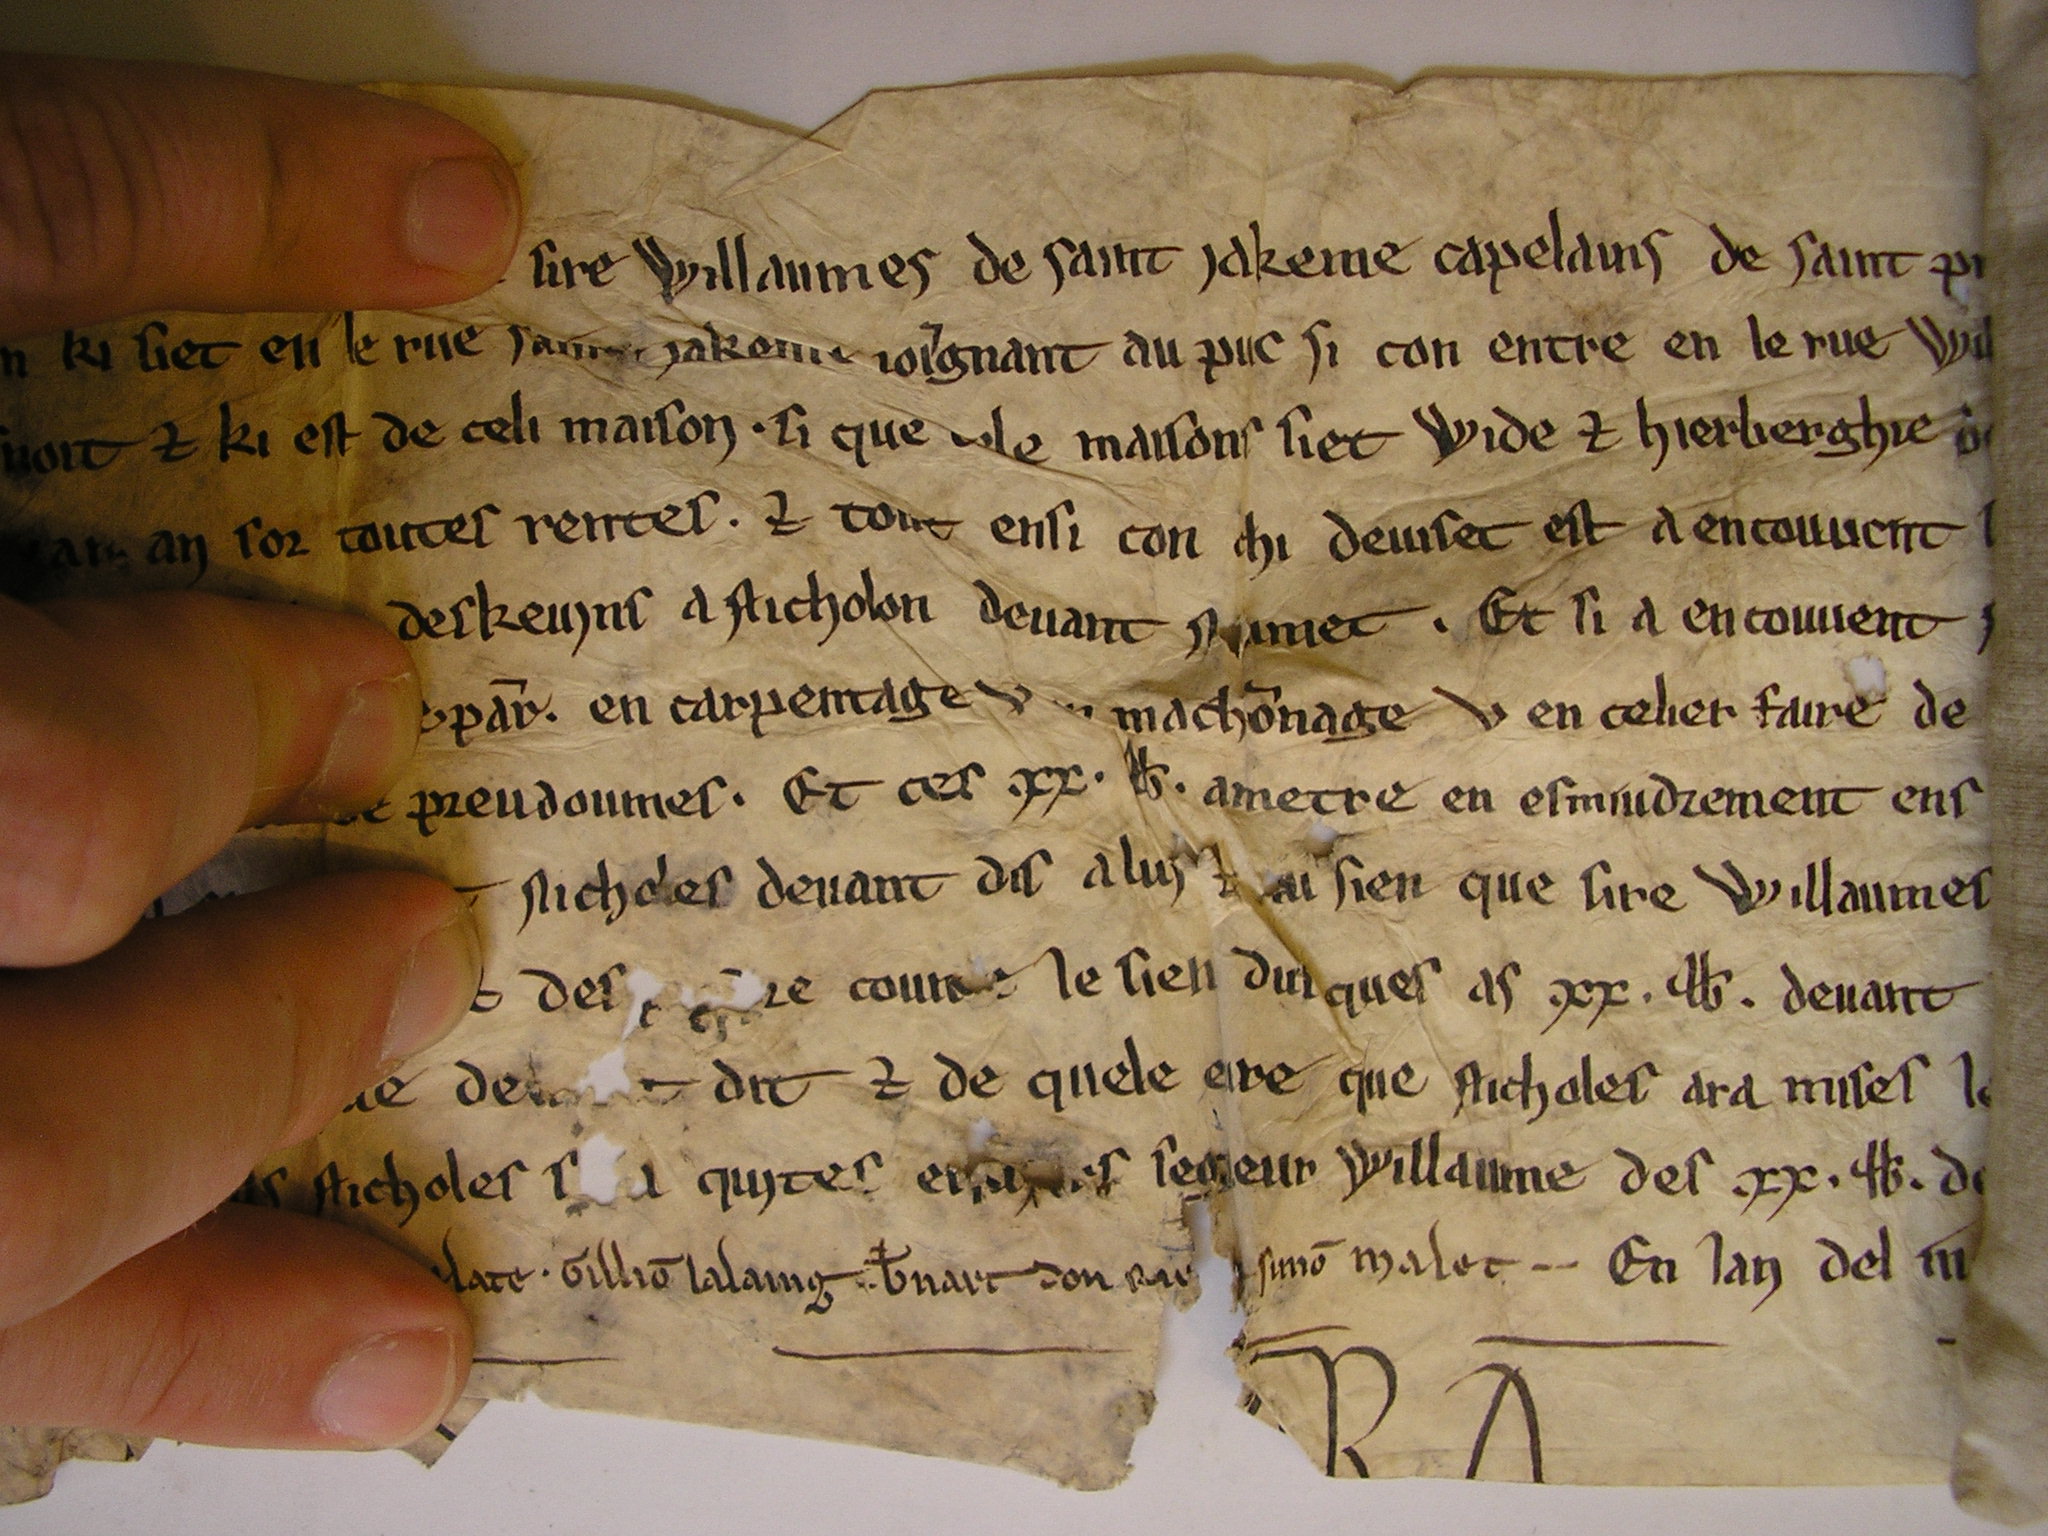 sire Willaumes de saint jakeme capelains de saint
ki siet en le rue saint jakeme ioignant au puc si con entre en le rue
⁊ ki est de celi maison . si que le maisons siet Wide ⁊ hierberghie
an sor toutes rentes . ⁊ tout ensi con chi deuiset est a encouuent
deskeuins a Nicholon deuant nomet . Et si a encouuent
en carpentage v en machōnage v en celier faire de
preudoumes . Et ces xx . lb . a metre en esmiudrement ens
Nicholes deuant dis a luy ⁊ au sien que sire Willaumes
des le sien dusques as xx . lb . deuant
dit ⁊ de quele eure que Nicholes ara mises
Nicholes quites segneur Willaume des xx . lb .
late . Gilliō lalaing . Bnart simō malet -- En lan del
R A